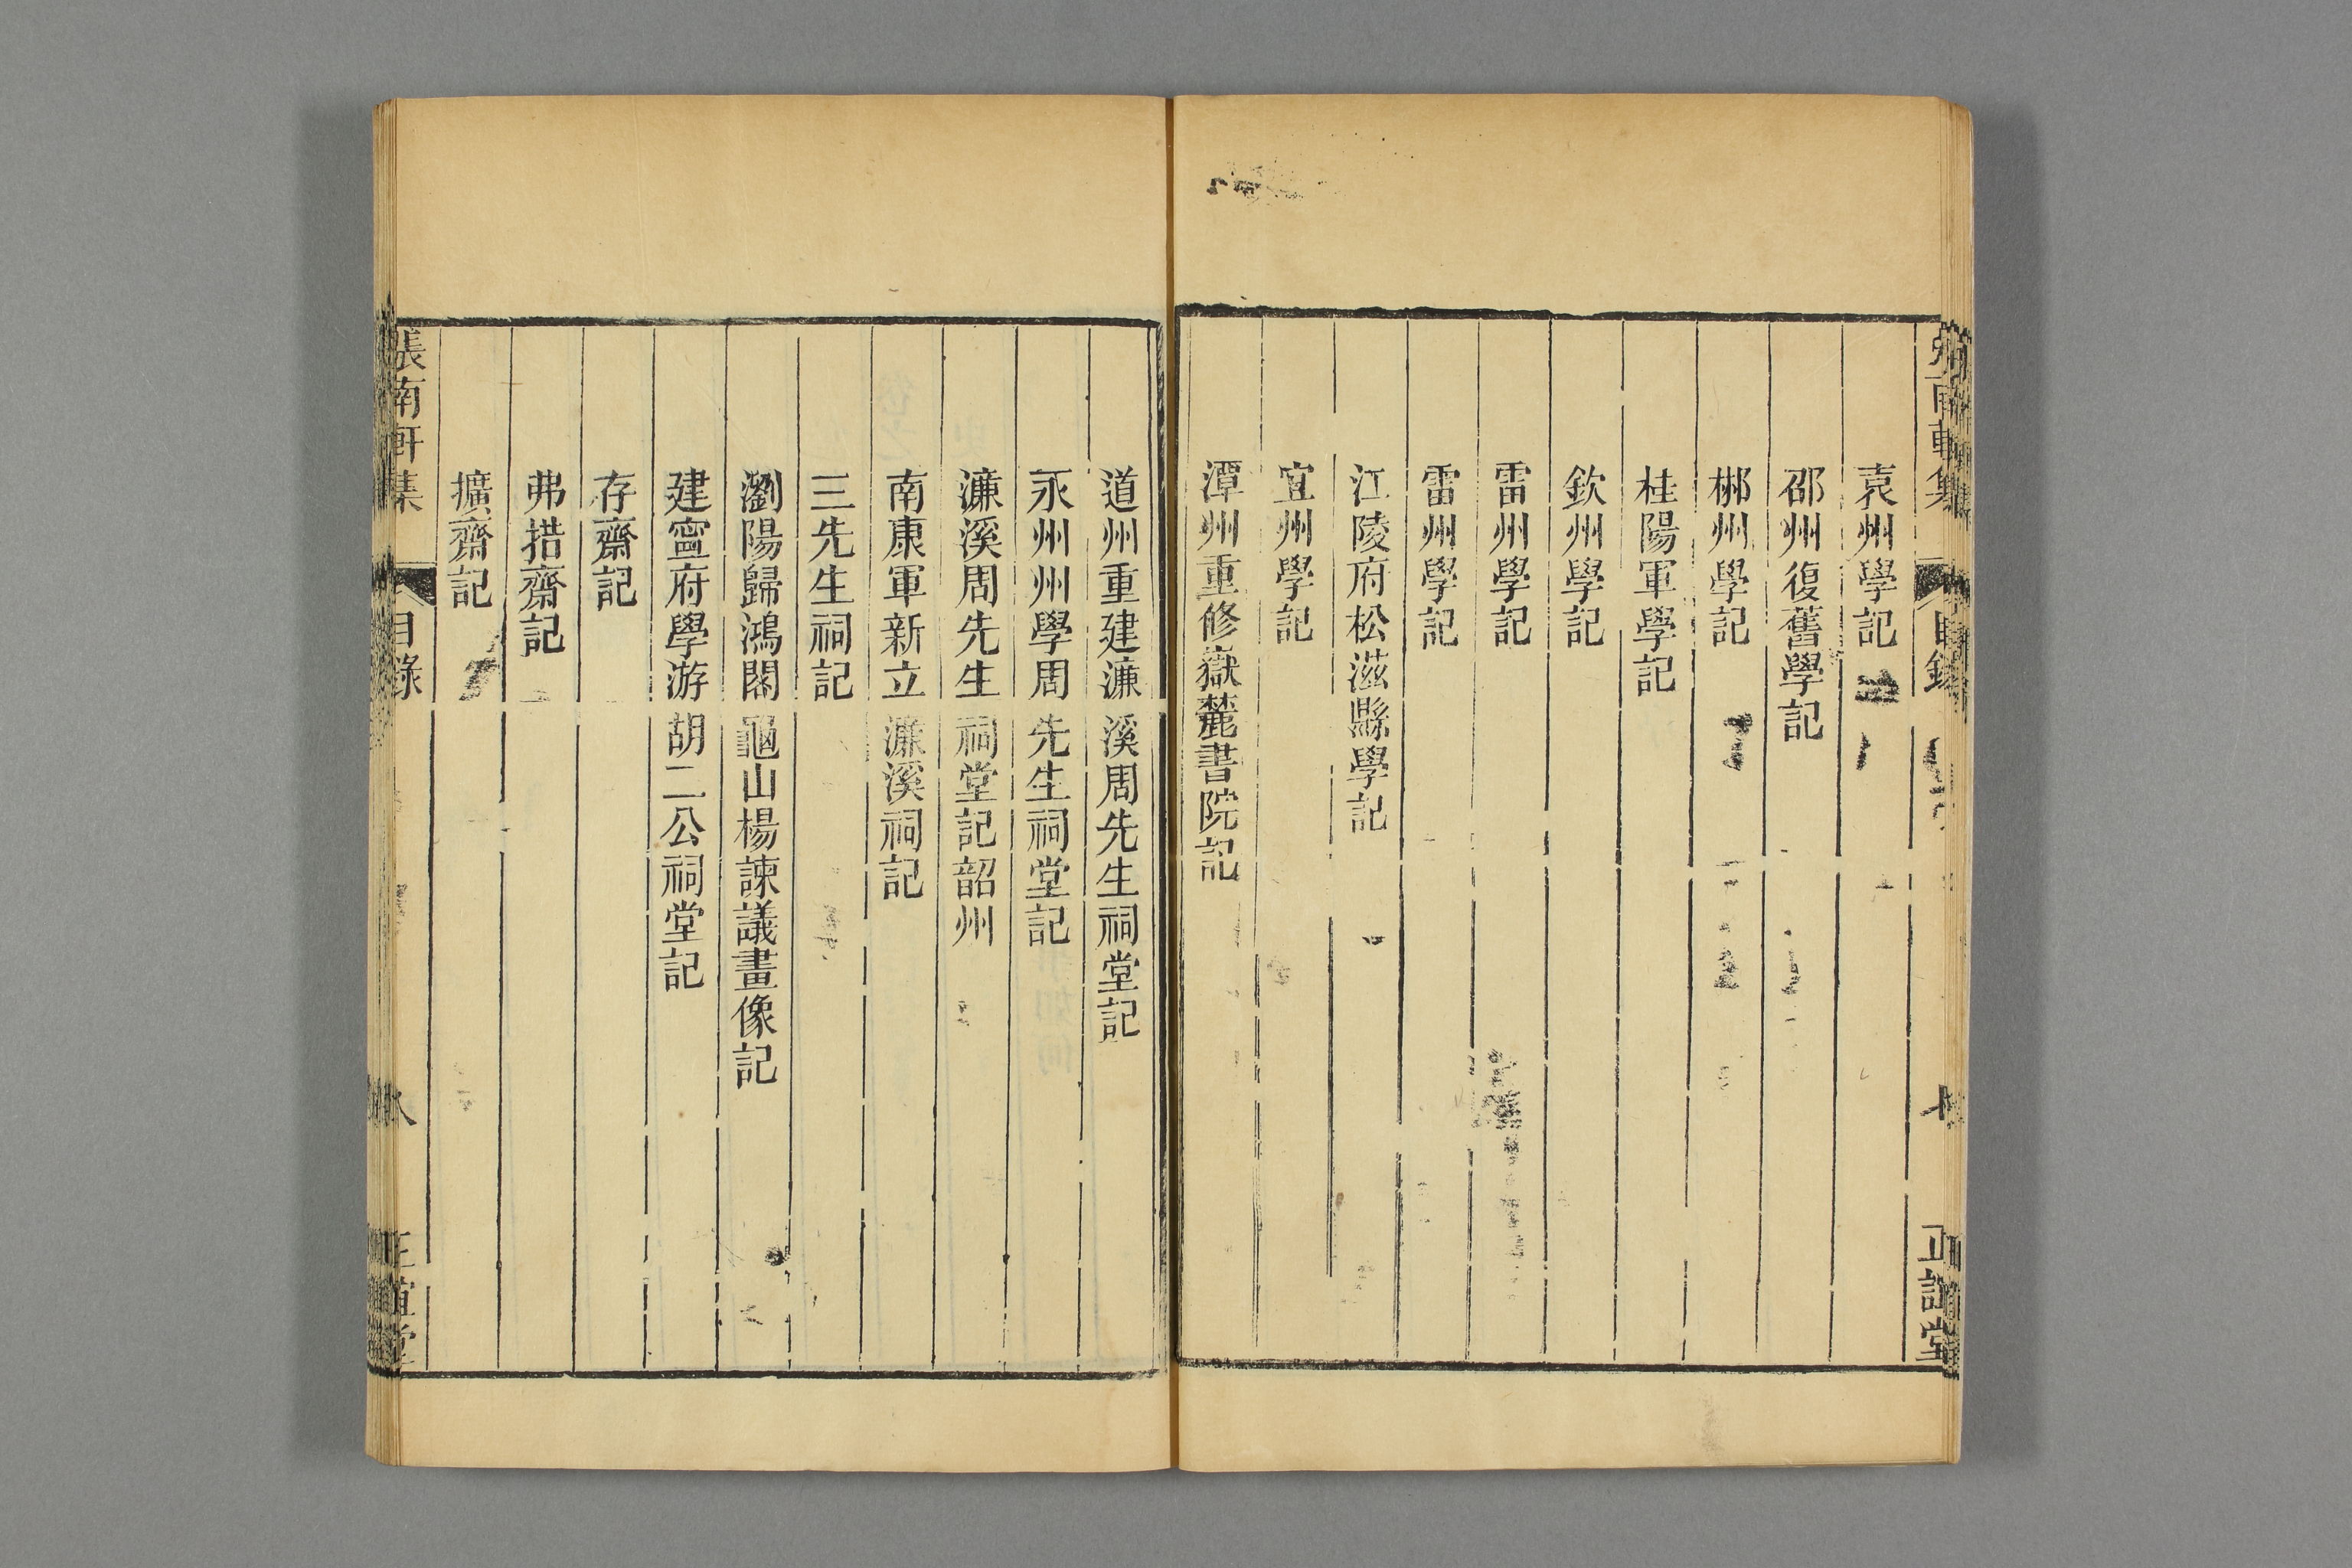 袁州學記
邵州復舊學記
郴州學記
桂陽軍學記
欽州學記
雷州學記
雷州學記
江陵府松滋縣學記
宜州學記
潭州重修嶽麓書院記
道州重建濂溪周先生祠堂記
永州州學周先生祠堂記
濂溪周先生祠堂記韶州
南康軍新立濂溪祠記
三先生祠記
瀏陽歸鴻閣龜山楊諫議畫像記
建寧府學游胡二公祠堂記
存齋記
弗措齋記
擴齋記
張南軒集
目錄
八
正誼堂